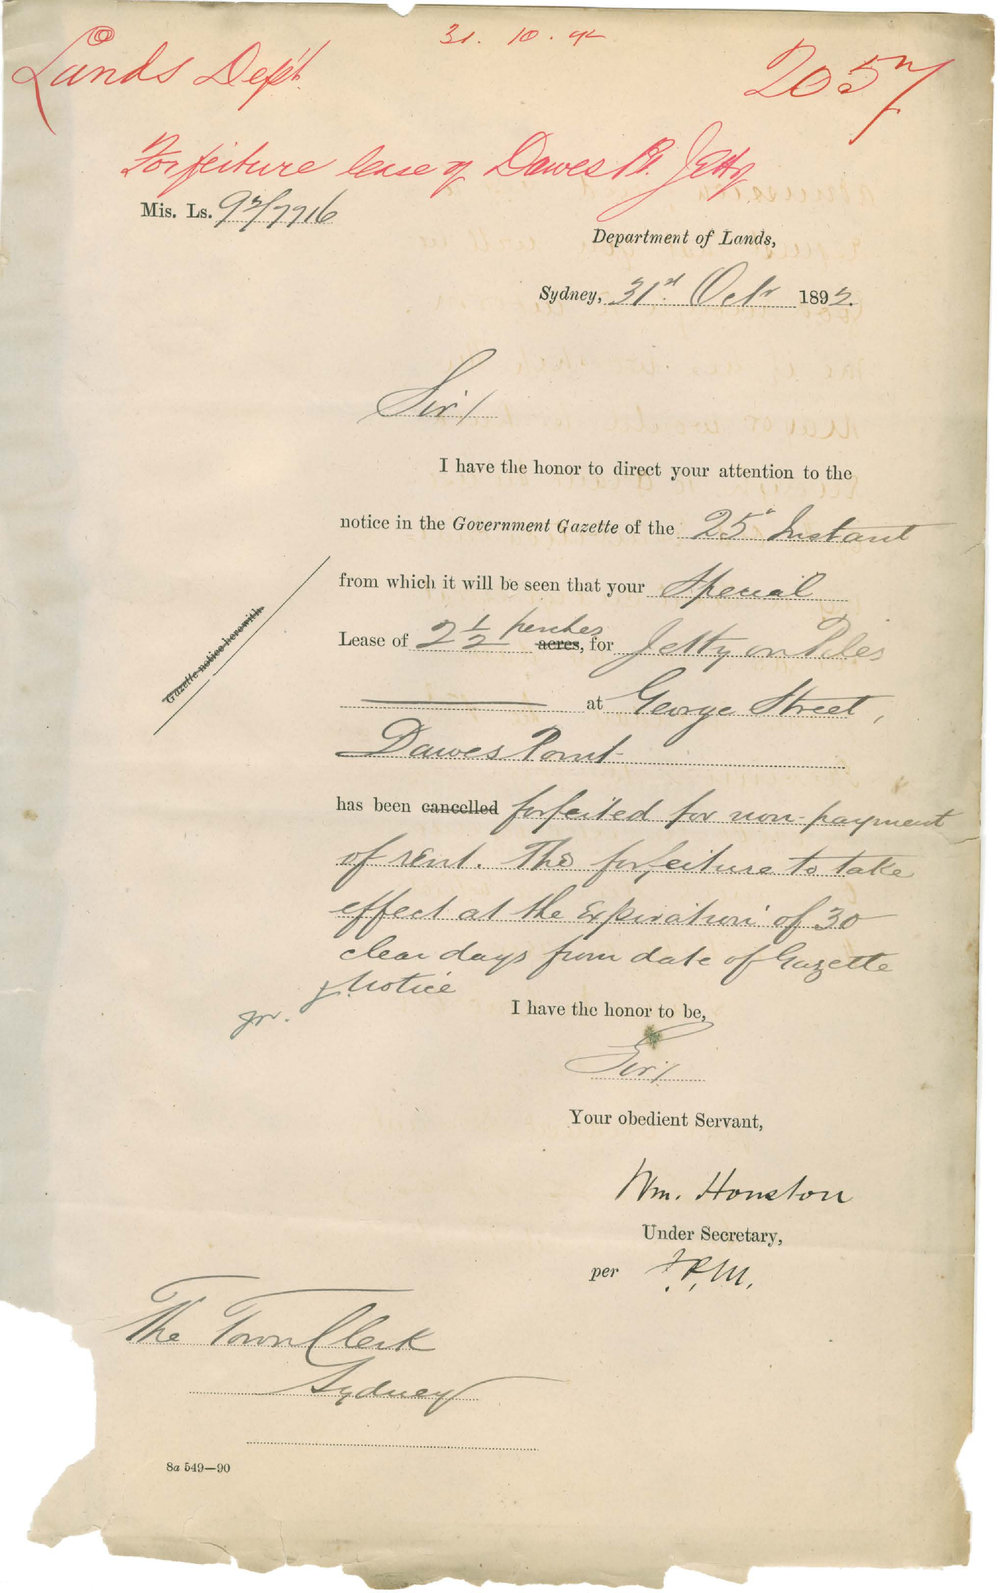 31. 10. 92
Lands Dept.
2057
Forfeiture lease of Dawes Pt. Jetty
Mis. Ls. 92/7716
Department of Lands,
Sydney, 31st Octr 1892.
Sir/
I have the honor to direct your attention to the
notice in the Government Gazette of the 25th Instant
from which it will be seen that your Special
Lease of 2 1/2 perches acres, for Jetty on Piles
at George Street,
Dawes Point
Gazette notice herewith.
has been cancelled forfeited for non-payment
of rent. The forfeiture to take
effect at the Expiration of 30
clear days from date of Gazette
Notice
I have the honor to be,
Sir/
Your obedient Servant,
Wm. Houston
Under Secretary,
per F.R.M.
The Town Clerk
Sydney
8a 549—90